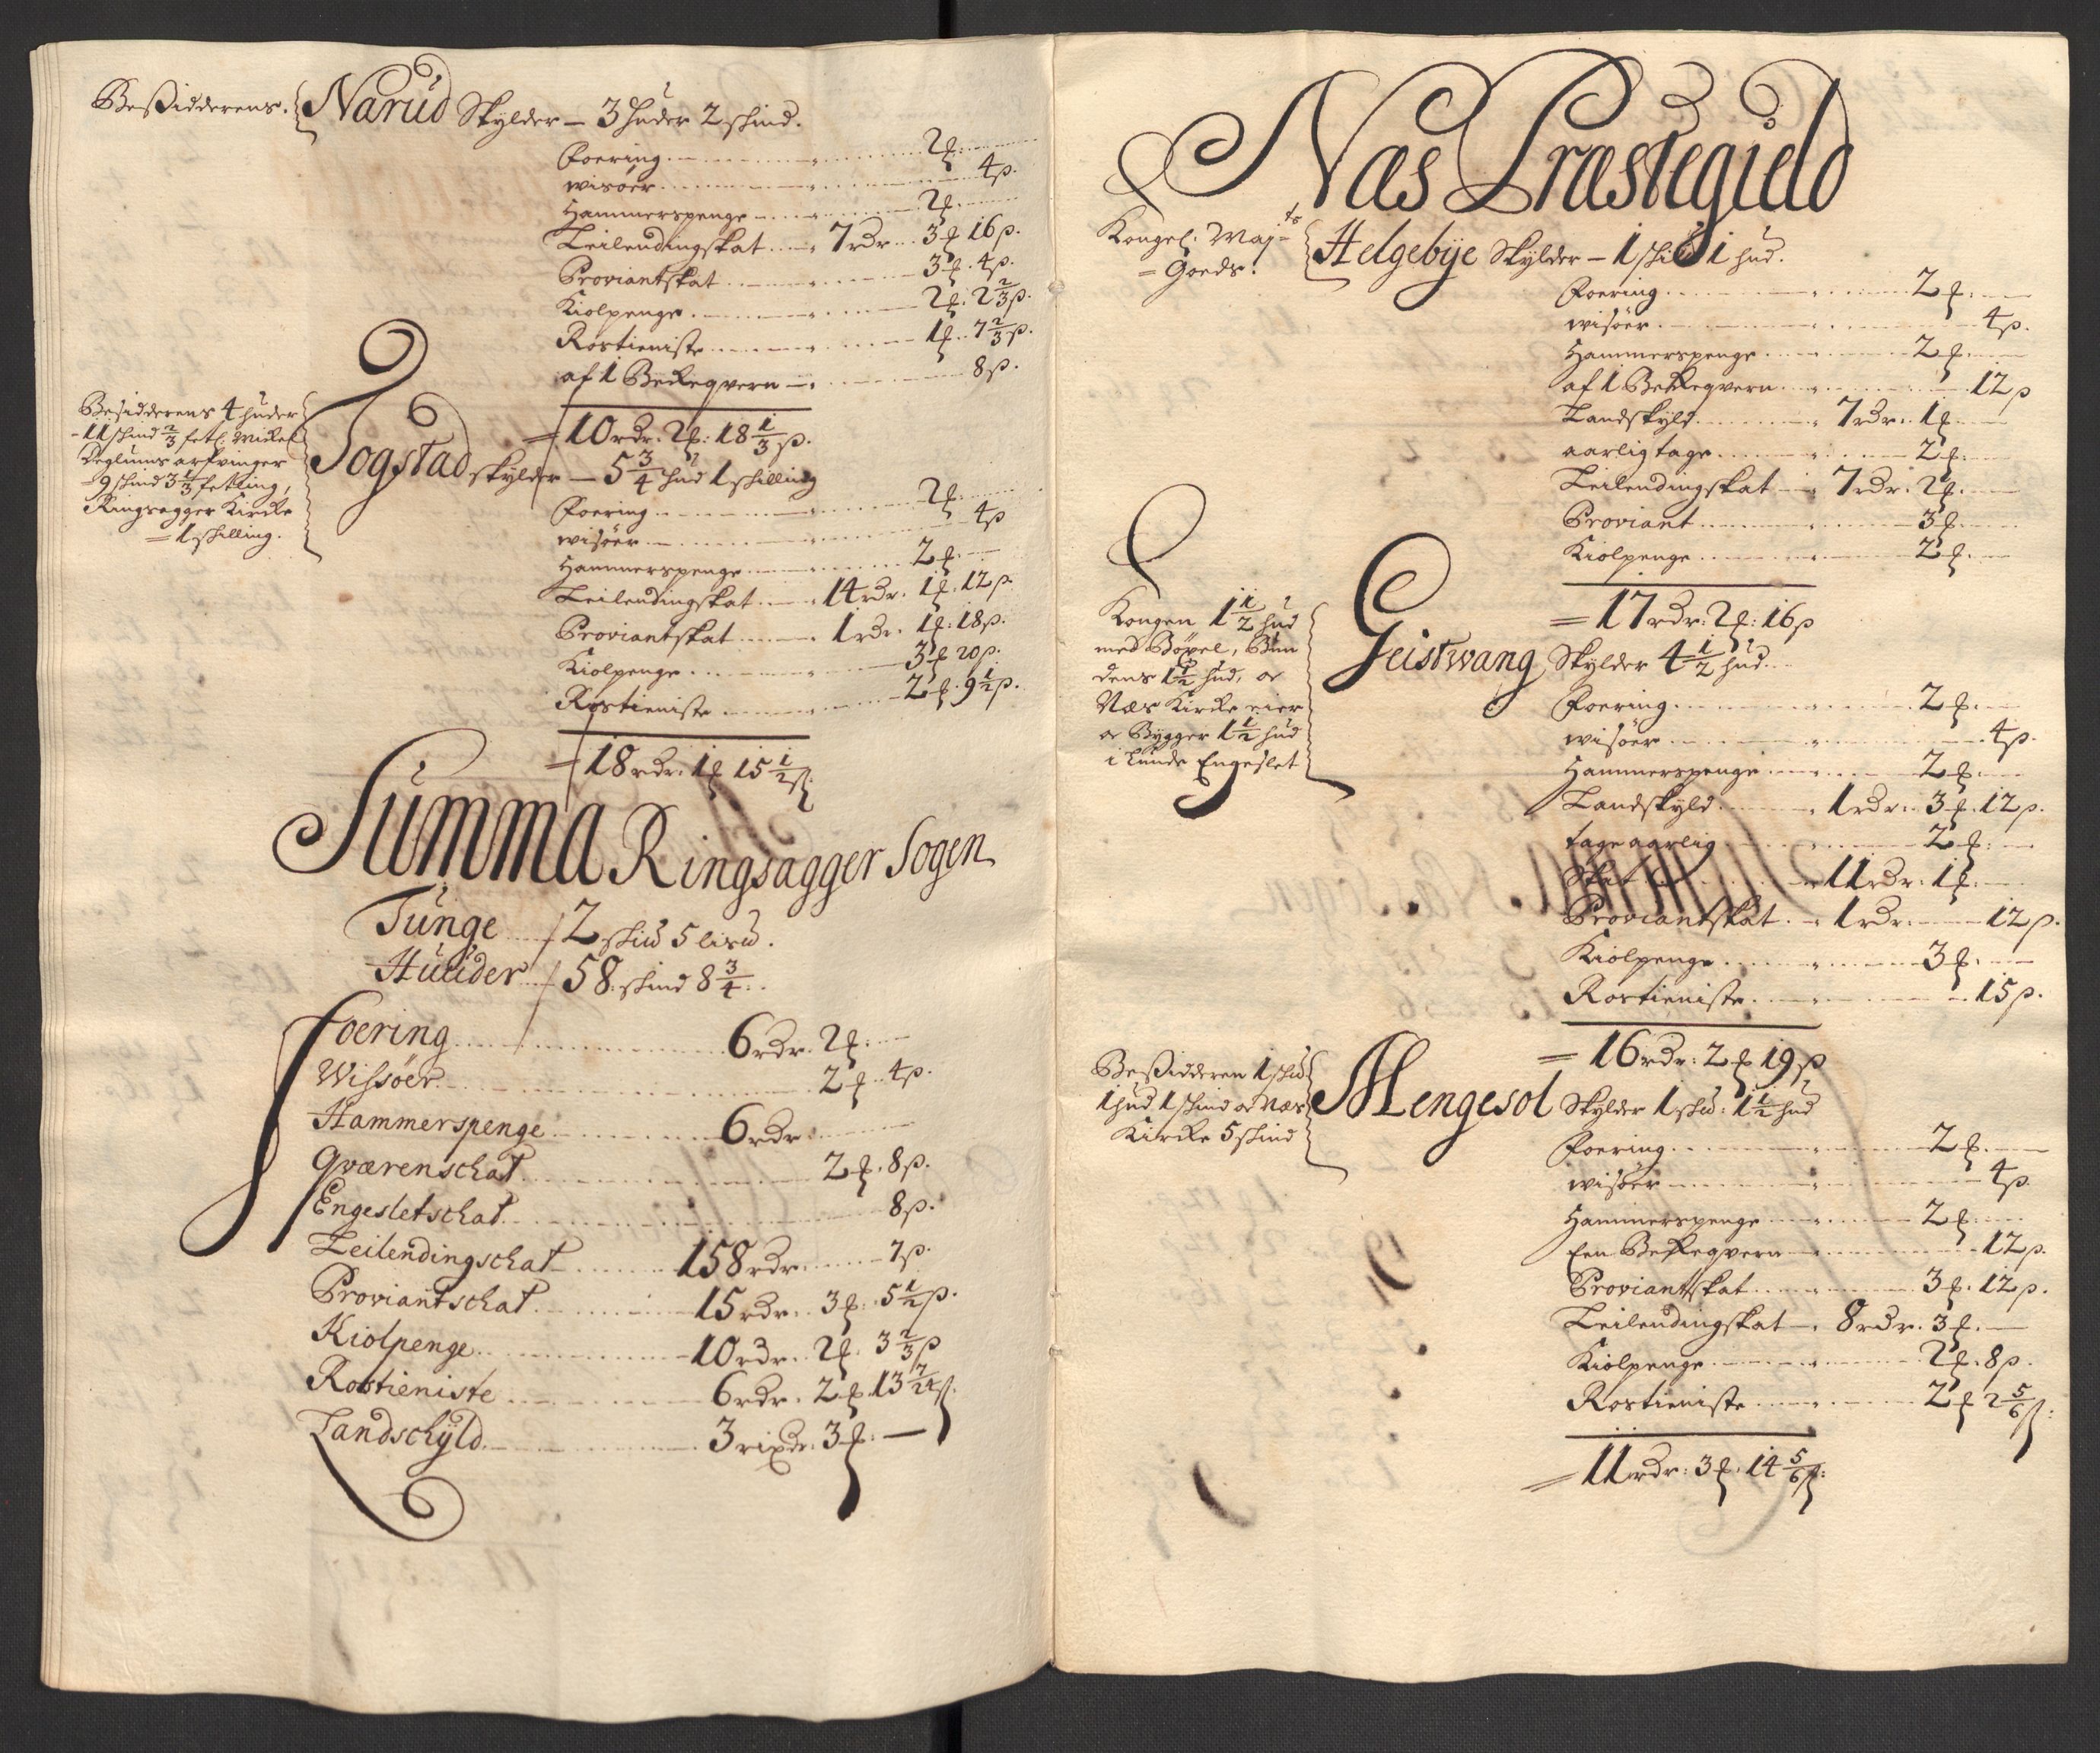 Beßidderens. Narud Skylder – 3 huder 2 skind.
Foering 2 ƒ
wisöer 4 ß.
Hammerspenge 2 ƒ
Leilendingskat 7 rdr. 3 ƒ 16 ß.
Proviantskat 3 ƒ. 4 ß.
Kiolpenge 2 ƒ. 2 2/3 ß.
Rostieniste 1 ƒ. 7 2/3 ß.
af 1 Bekeqvern 8 ß.
= 10 rdr. 2 ƒ: 18 1/3 ß.
Besidderens 4 huder
- 11 skind 2/3 fetl. Mickel
Deglums arfvinger
- 9 skind 3 1/3 fetling,
Ringsagger Kircke
= 1 skilling.
Togstad skylder – 5 3/4 hud 1 skilling
Foering 2 ƒ
wisöer 4 ß
Hammerspenge 2 ƒ
Leilendingskat 14 rdr. 1 ƒ. 12 ß.
Proviantskat 1 rdr. 1 ƒ: 18 ß.
Kiolpenge 3 ƒ 20 ß.
Rostieniste 2 ƒ. 9 1/2 ß.
= 18 rdr. 1 ƒ 15 1/2 ß:
Summa Ringsagger Sogen
Tunge 2 skud 5 lisd.
Huuder 58. skind 8 3/4.
Foering 6 rdr. 2 ƒ.
Wissöer 2 ƒ. 4 ß.
Hammerspenge 6 rdr
Qværenschat 2 ƒ. 8 ß.
Engesletschat 8 ß.
Leilendingschat 158 rdr. 7 ß.
Proviantschat 15 rdr. 3 ƒ. 5 1/2 ß.
Kiolpenge 10 rdr. 2 ƒ. 3 2/3 ß
Rostieniste 6 rdr. 2 ƒ 13 17/24 ß.
Landschyld 3 rixdr. 3 ƒ. —
Næs Præstegield
Kongel. Maj-ts
= Goeds.
Helgebye Skylder – 1 skud 1 hud.
Foering 2 ƒ.
wisöer 4 ß.
Hammerspenge 2 ƒ.
af 1 Bekeqvern 12 ß
Landskyld 7 rdr. 1 ƒ.
aarlig tage 2 ƒ.
Leilendingskat 7 rdr. 2 ƒ.
Proviant 3 ƒ.
Kiolpenge 2 ƒ.
= 17 rdr: 2 ƒ: 16 ß
Kongen 1 1/2 hud
med Böxel, Bon
dens 1 1/2 hud, oc
Næs Kircke eier
oc Bygger 1 1/2 hud
i Lunde Engeslet
Geistwang Skylder 4 1/2 hud.
Foering 2 ƒ.
wisöer 4 ß.
Hammerspenge 2 ƒ.
Landskyld 1 rdr. 3 ƒ. 12 ß.
tage aarlig 2 ƒ.
Skat 11 rdr. 1 ƒ.
Proviantskat 1 rdr. 12 ß.
Kiolpenge 3 ƒ.
Rostieniste 15 ß.
= 16 rdr: 2 ƒ 19 ß
Beßidderen 1 skud
1 hud 1 skind oc Næs
Kircke 5 skind
Mengesol Skylder 1 skud: 1 1/2 hud
Foering 2 ƒ.
wisöer 4 ß.
Hammerspenge 2 ƒ.
Een Bekeqvern 12 ß.
Proviantskat 3 ƒ. 12 ß.
Leilendingskat 8 rdr. 3 ƒ.
Kiolpenge 2 ƒ. 8 ß.
Rostieniste 2 ƒ 2 5/6 ß.
= 11 rdr: 3 ƒ. 14 5/6 ß: